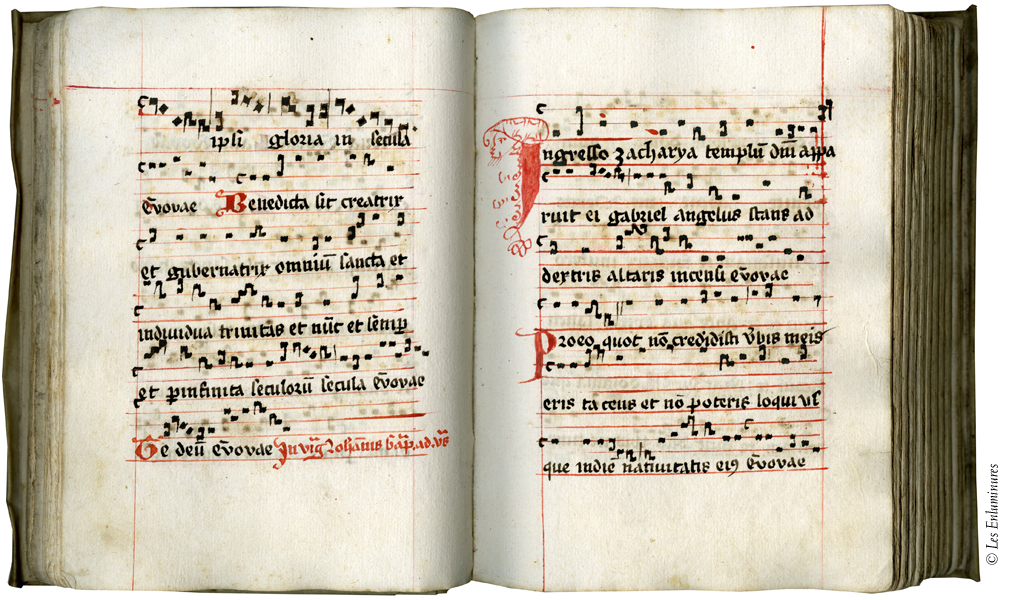 ipsi gloria in secula
Evovae Benedicta sit creatrix
et gubernatrix omniũ sancta et
individua trinitas et nũc et semp
et pinfinita seculorũ secula Evovae
Te deũ evovae In vig Iohannis bap. ad vs
Ingresso zacharya templũ dm̃ appa
ruit ei gabriel angelus stans ad
dextris altaris incensi evovae
Proeo quot nõ credidisti vbis meis
eris taceus et nõ poteris loqui vsͨ
que indie nativitatis eiꝰ Evovae
© Les Enluminures